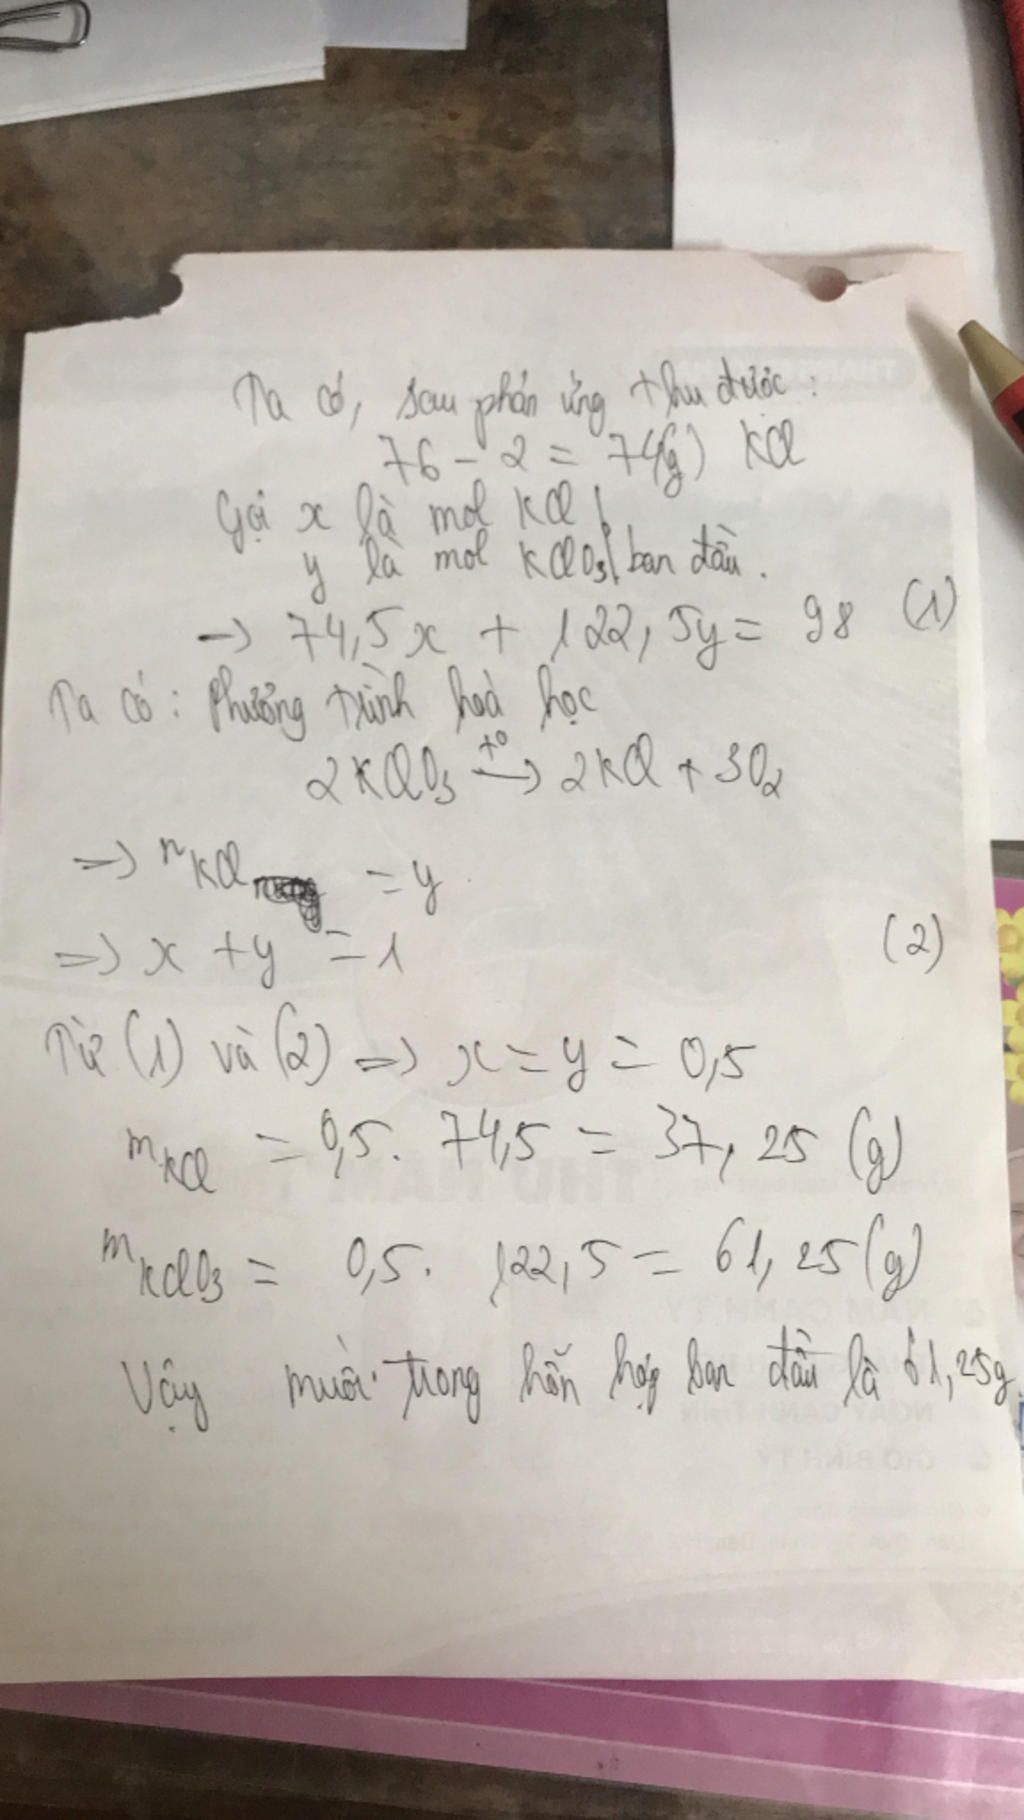 Ta có, sau phản ứng thu được:
76 - 2 = 74(g) KCl
Gọi x là mol KCl
y là mol KClO3 ban đầu.
→ 74,5x + 122,5y = 98 (1)
Ta có: Phương trình hoá học
2KClO3 →(t°) 2KCl + 3O2
=> nKCl = y
=> x + y = 1 (2)
Từ (1) và (2) => x = y = 0,5
mKCl = 0,5. 74,5 = 37,25 (g)
mKClO3 = 0,5. 122,5 = 61,25(g)
Vậy muối trong hỗn hợp ban đầu là 61,25g